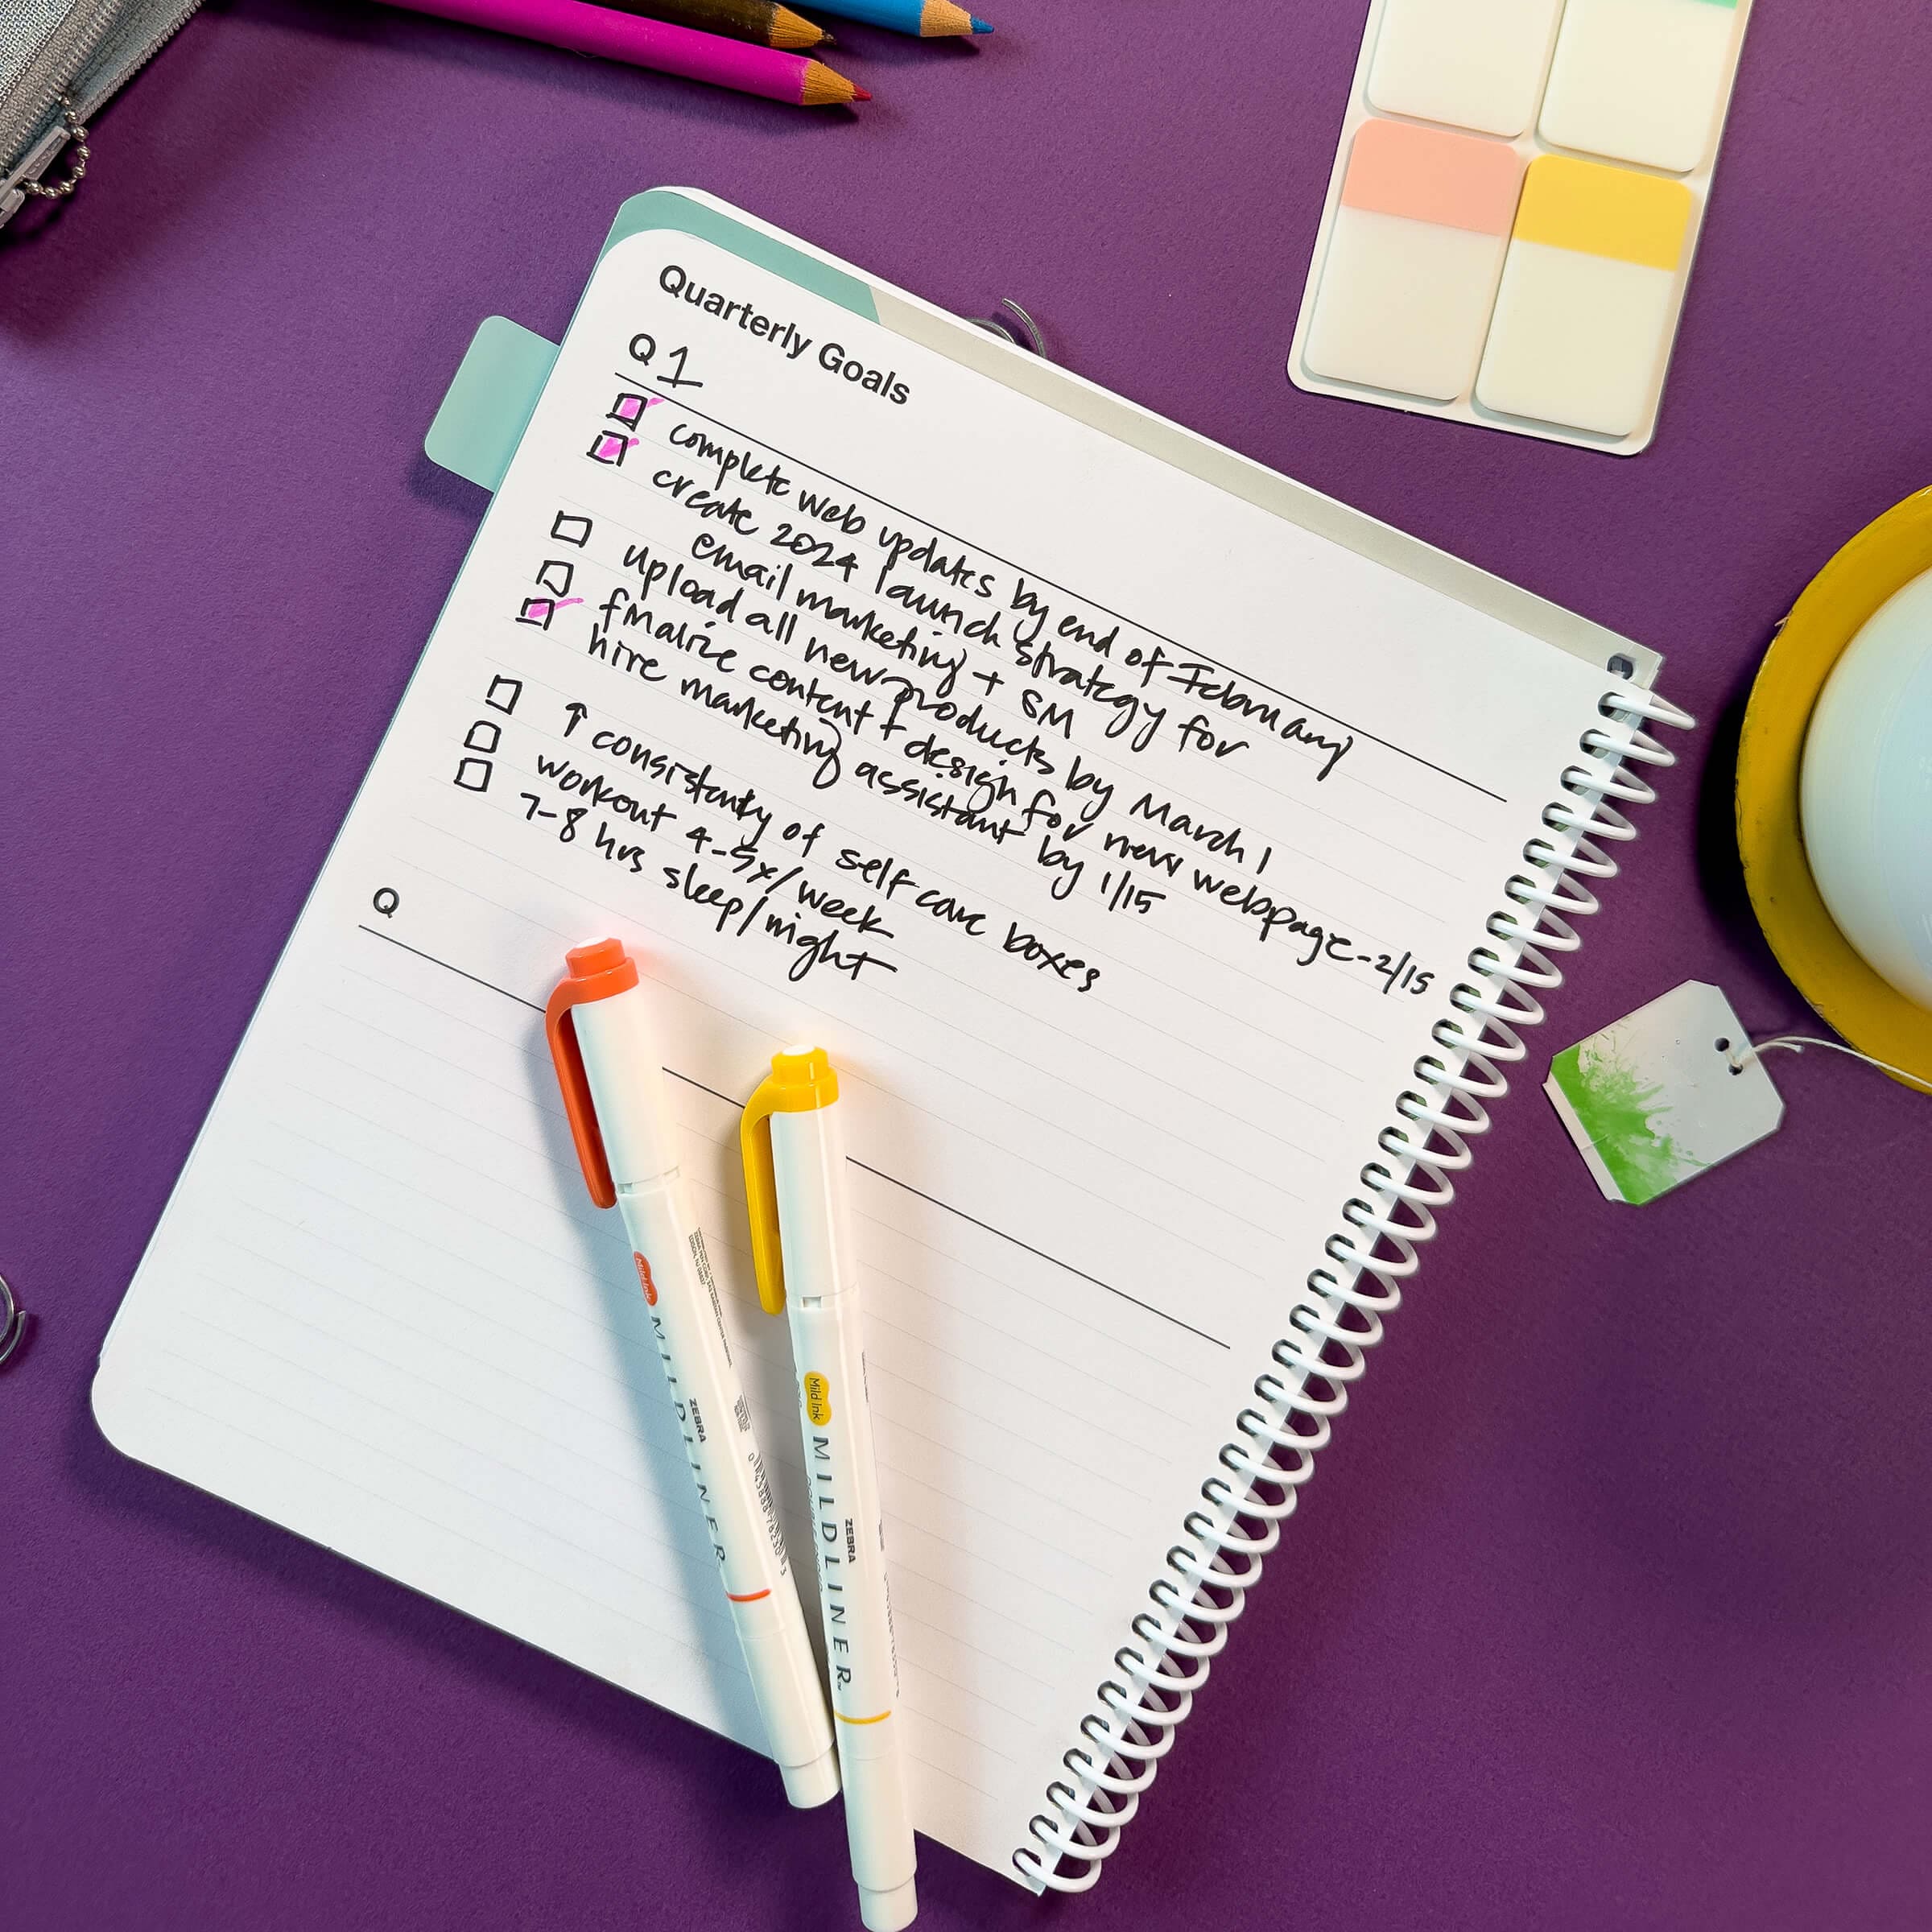 Quarterly Goals
Q 1
complete web updates by end of February
create 2024 launch strategy for
email marketing + SM
upload all new products by March 1
finalize content + design for new webpage - 2/15
hire marketing assistant by 1/15
↑ consistency of self care boxes
workout 4-5x/week
7-8 hrs sleep/night
Q
Mild Ink
ZEBRA
MILDLINER
Mild Ink
ZEBRA
MILDLINER